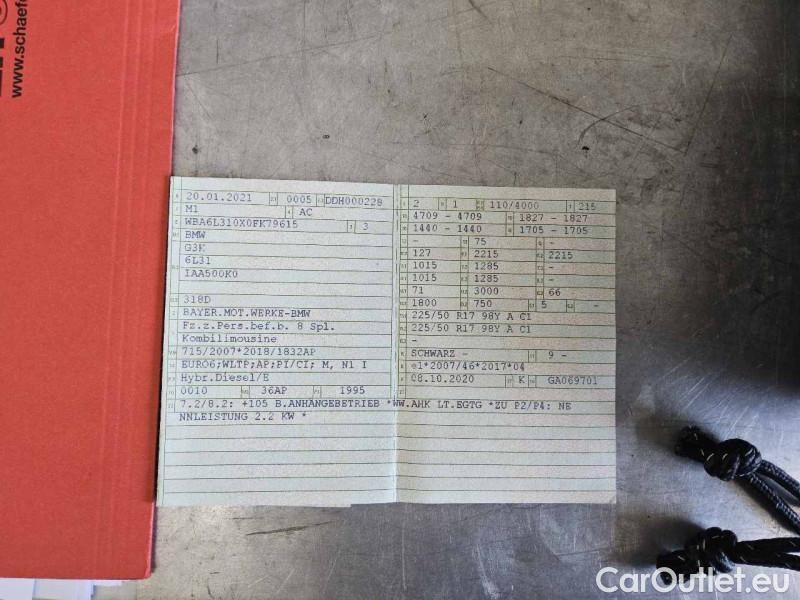 www.schaef
20.01.2021 0005 DDH000228
M1 AC
WBA6L310X0FK79615 3
BMW
G3K
6L31
IAA500K0
318D
BAYER.MOT.WERKE-BMW
Fz.z.Pers.bef.b. 8 Spl.
Kombilimousine
715/2007*2018/1832AP
EURO6;WLTP;AP;PI/CI; M, N1 I
Hybr.Diesel/E
0010 36AP 1995
2 1 110/4000 215
4709 - 4709 1827 - 1827
1440 - 1440 1705 - 1705
- 75 -
127 2215 2215
1015 1285 -
1015 1285 -
71 3000 66
1800 750 5 -
225/50 R17 98Y A C1
225/50 R17 98Y A C1
-
-
SCHWARZ - 9 -
e1*2007/46*2017*04
08.10.2020 K GA069701
7.2/8.2: +105 B.ANHÄNGEBETRIEB *WW.AHK LT.EGTG *ZU P2/P4: NE
NNLEISTUNG 2.2 KW *
CarOutlet.eu